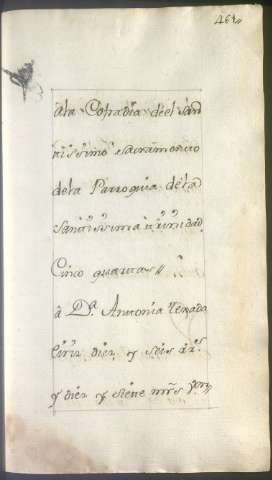 464
ala Cofradia deel San
tissimo sacramento
dela Parroquia dela
santissima trinidad
Cinco quartas//
â Da. Antonia
diez y seis rs.
y diez y siete mrs